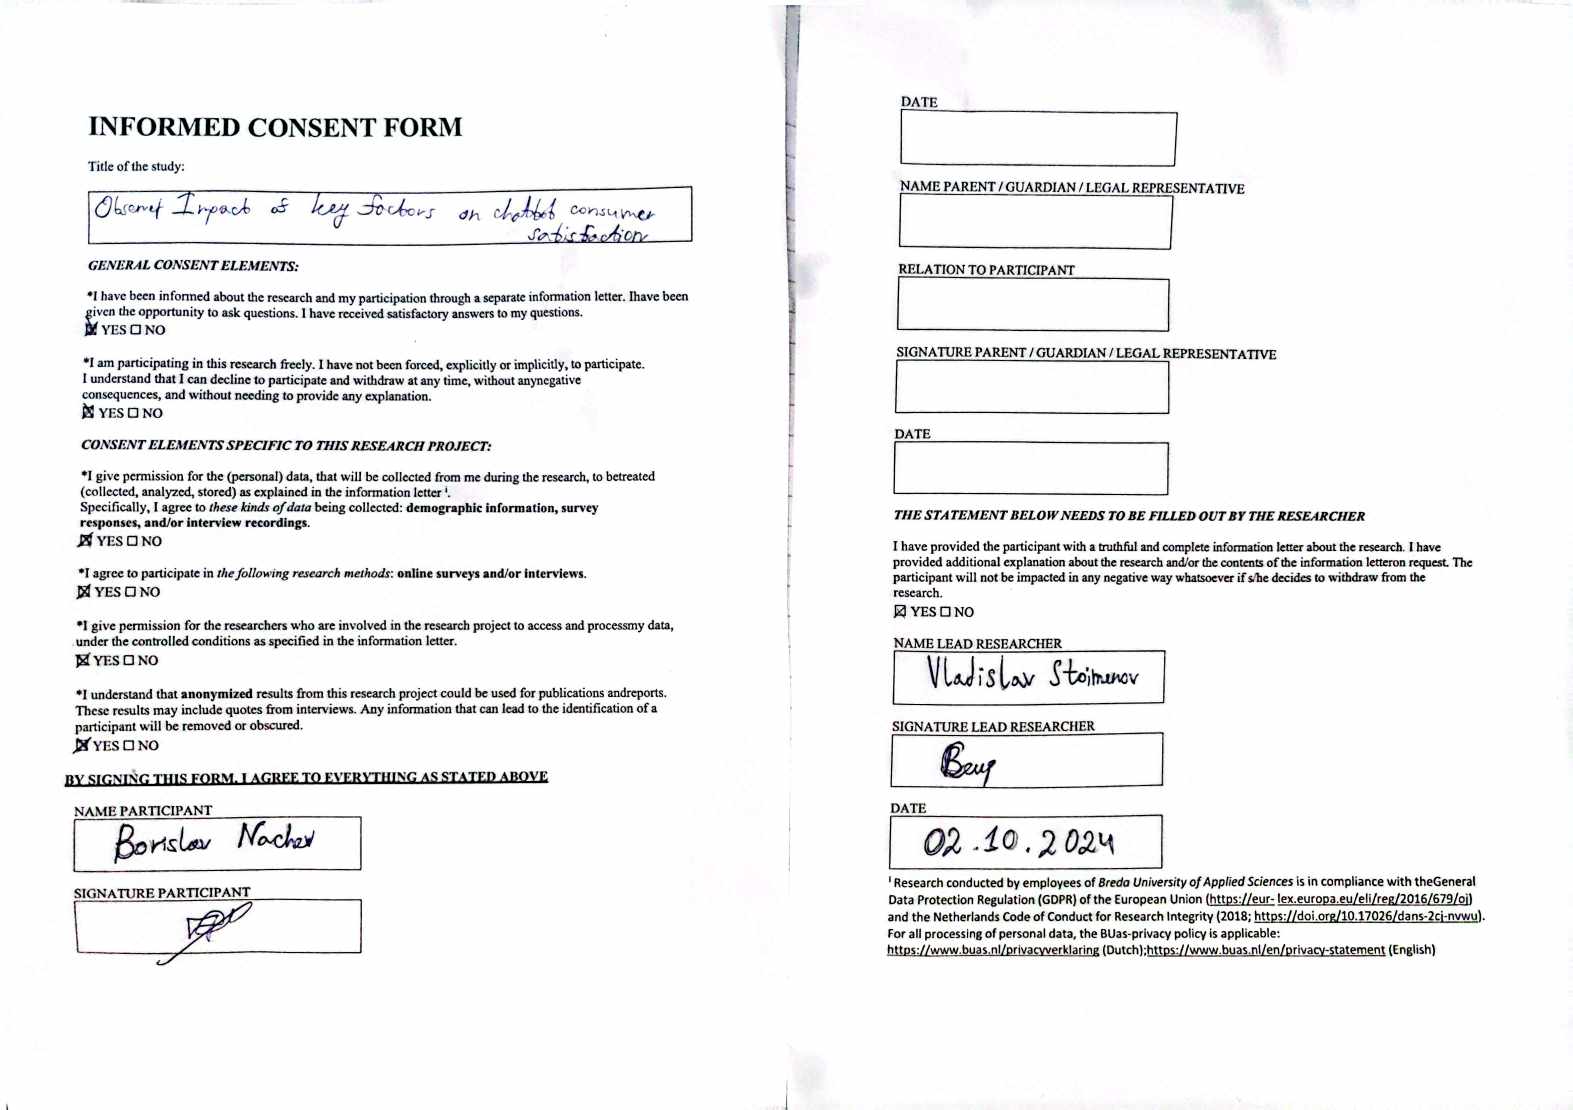 INFORMED CONSENT FORM
Title of the study:
Impact of key factors on chatbot consumer
satisfaction
GENERAL CONSENT ELEMENTS:
*I have been informed about the research and my participation through a separate information letter. Ihave been
given the opportunity to ask questions. I have received satisfactory answers to my questions.
☒ YES ☐ NO
*I am participating in this research freely. I have not been forced, explicitly or implicitly, to participate.
I understand that I can decline to participate and withdraw at any time, without anynegative
consequences, and without needing to provide any explanation.
☒ YES ☐ NO
CONSENT ELEMENTS SPECIFIC TO THIS RESEARCH PROJECT:
*I give permission for the (personal) data, that will be collected from me during the research, to betreated
(collected, analyzed, stored) as explained in the information letter ¹.
Specifically, I agree to these kinds of data being collected: demographic information, survey
responses, and/or interview recordings.
☒ YES ☐ NO
*I agree to participate in the following research methods: online surveys and/or interviews.
☒ YES ☐ NO
*I give permission for the researchers who are involved in the research project to access and processmy data,
under the controlled conditions as specified in the information letter.
☒ YES ☐ NO
*I understand that anonymized results from this research project could be used for publications andreports.
These results may include quotes from interviews. Any information that can lead to the identification of a
participant will be removed or obscured.
☒ YES ☐ NO
BY SIGNING THIS FORM, I AGREE TO EVERYTHING AS STATED ABOVE
NAME PARTICIPANT
Borislav Nachev
SIGNATURE PARTICIPANT
DATE
NAME PARENT / GUARDIAN / LEGAL REPRESENTATIVE
RELATION TO PARTICIPANT
SIGNATURE PARENT / GUARDIAN / LEGAL REPRESENTATIVE
DATE
THE STATEMENT BELOW NEEDS TO BE FILLED OUT BY THE RESEARCHER
I have provided the participant with a truthful and complete information letter about the research. I have
provided additional explanation about the research and/or the contents of the information letteron request. The
participant will not be impacted in any negative way whatsoever if s/he decides to withdraw from the
research.
☒ YES ☐ NO
NAME LEAD RESEARCHER
Vladislav Stoimenov
SIGNATURE LEAD RESEARCHER
DATE
02.10.2024
¹ Research conducted by employees of Breda University of Applied Sciences is in compliance with theGeneral
Data Protection Regulation (GDPR) of the European Union (https://eur- lex.europa.eu/eli/reg/2016/679/oj)
and the Netherlands Code of Conduct for Research Integrity (2018; https://doi.org/10.17026/dans-2cj-nvwu).
For all processing of personal data, the BUas-privacy policy is applicable:
https://www.buas.nl/privacyverklaring (Dutch);https://www.buas.nl/en/privacy-statement (English)